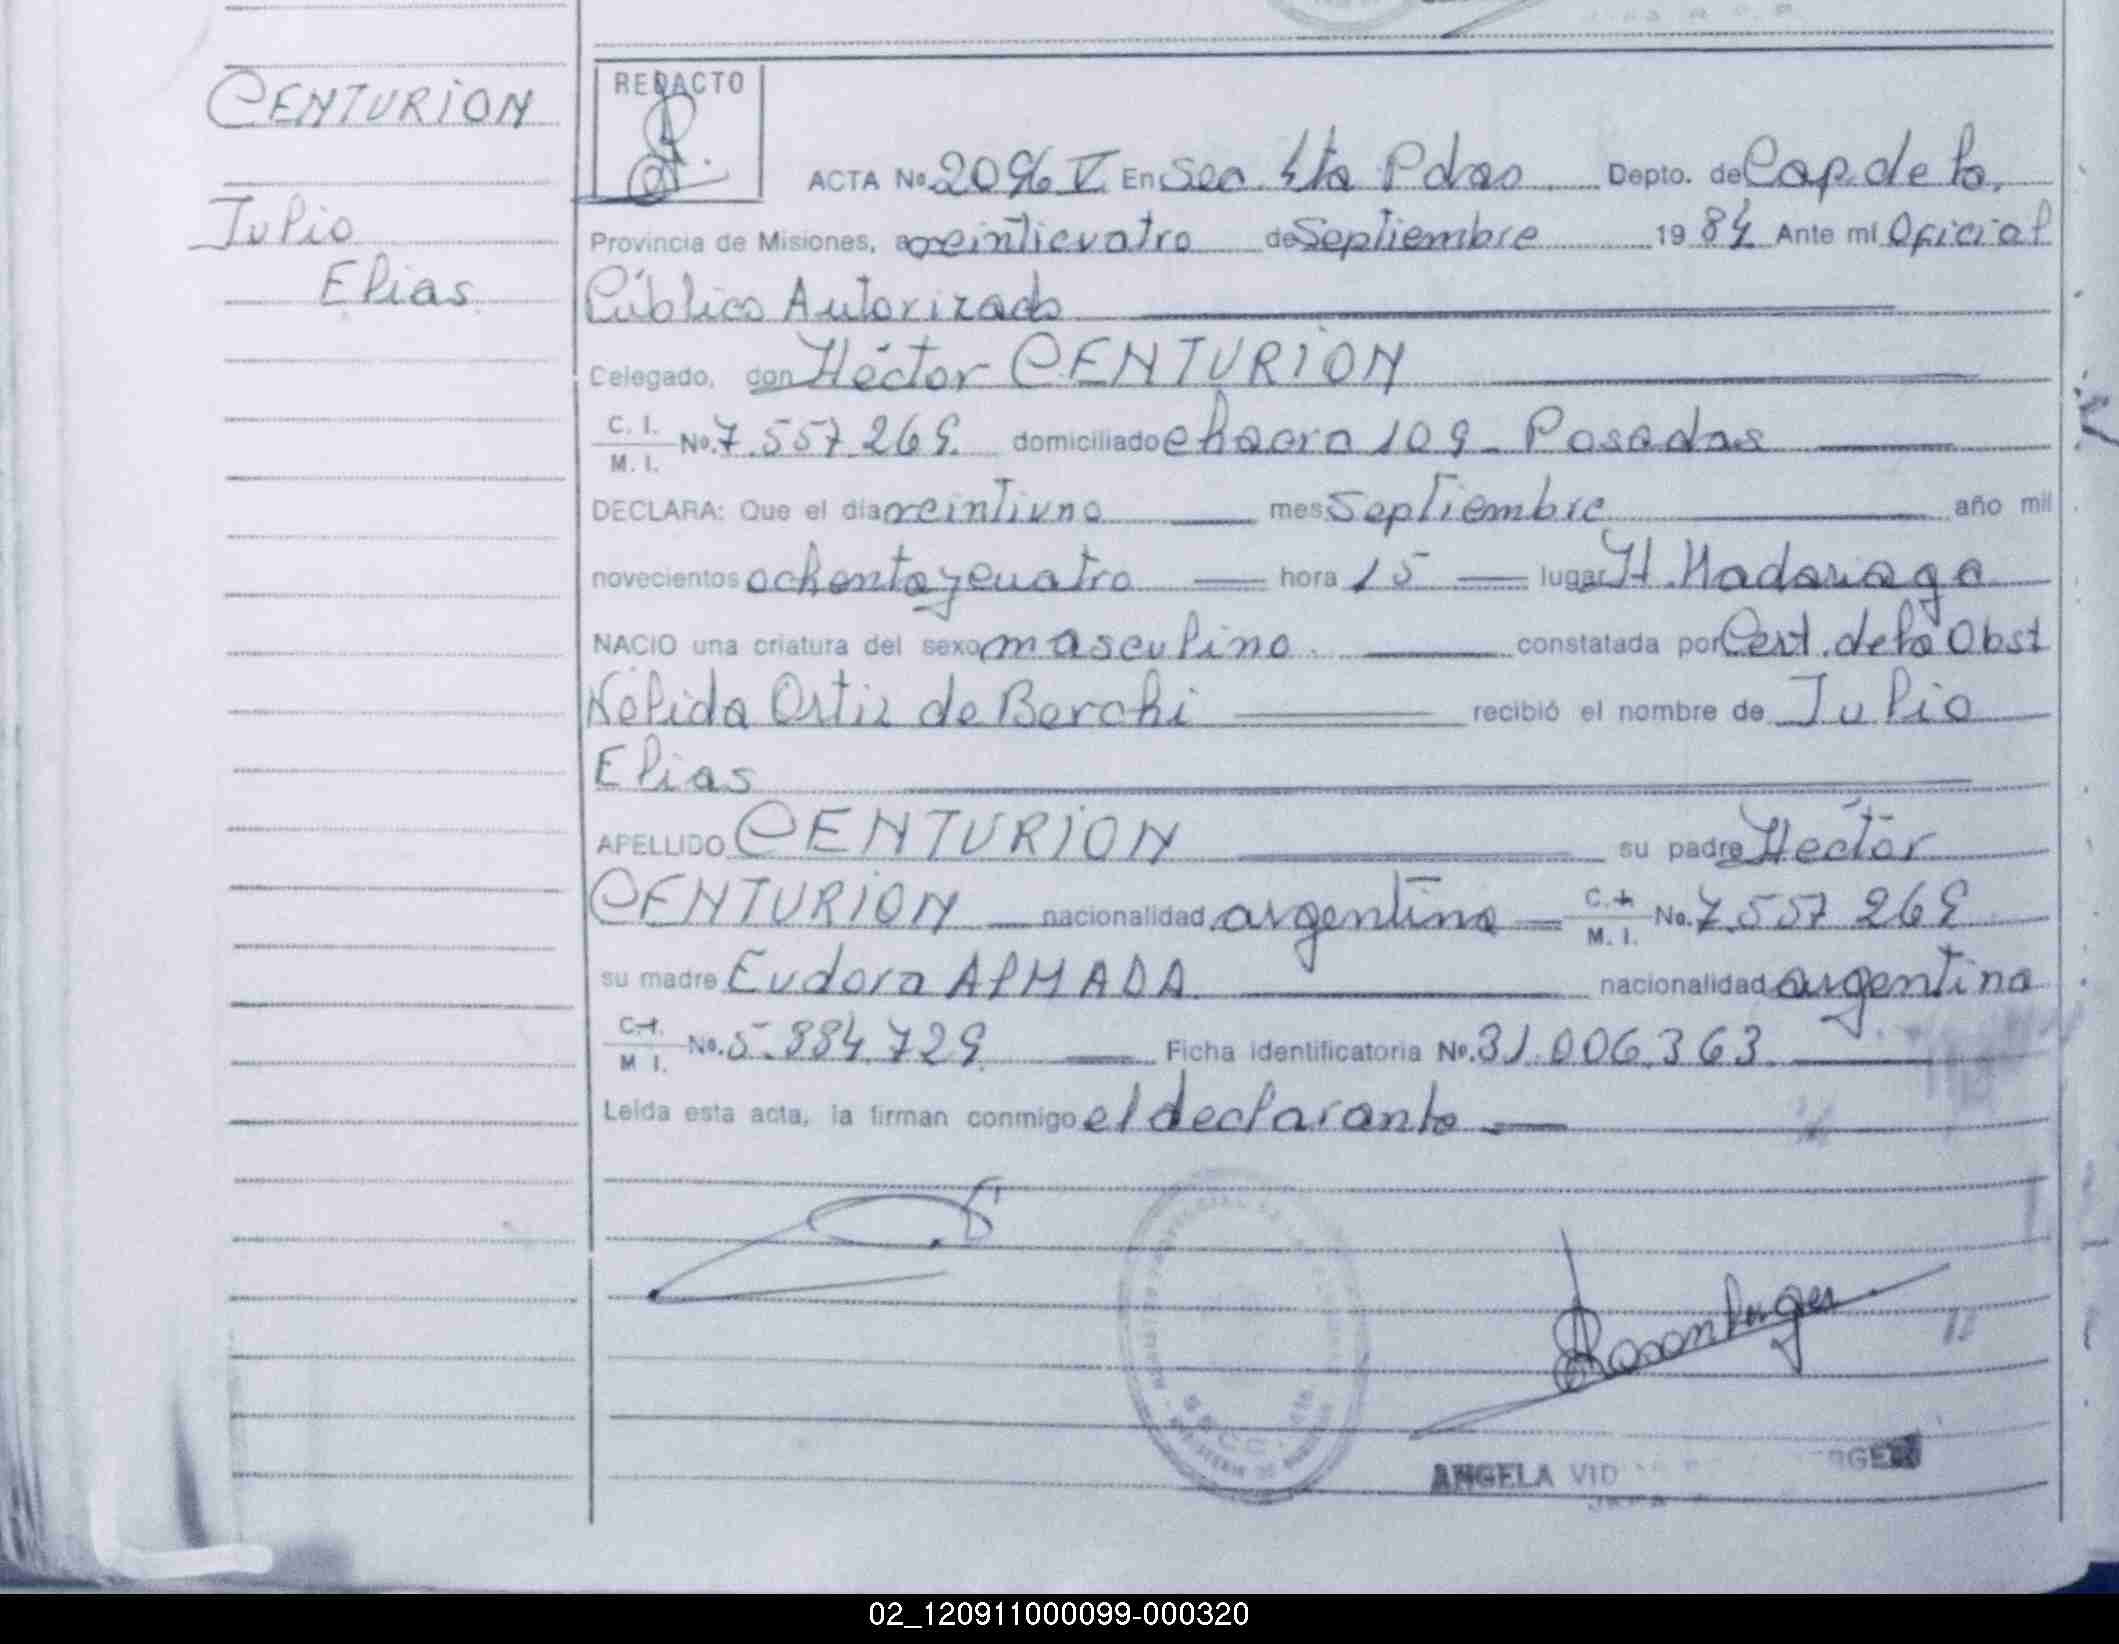 CENTURION
Julio
Elias
REDACTO
ACTA No. 2096 V En Sec. 4ta Pdas Depto. de Cap. de la
Provincia de Misiones, a veinticuatro de Septiembre 1984 Ante mí Oficial
Público Autorizado
Celegado, don Héctor CENTURION
C. I.
M. I.
No. 7.557.269 domiciliado chacra 109 - Posadas
DECLARA: Que el día veintiuno mes Septiembre año mil
novecientos ochenta y cuatro hora 15 lugar H. Madariaga
NACIO una criatura del sexo masculino constatada por Cert. de la Obst
Nélida Ortiz de Berchi recibió el nombre de Julio
Elias
APELLIDO CENTURION su padre Héctor
CENTURION nacionalidad argentina C. I.
M. I.
No. 7.557.269
su madre Eudora ALMADA nacionalidad argentina
C. I.
M. I.
No. 5.884.729 Ficha identificatoria No. 31.006.363
Leída esta acta, la firman conmigo el declarante
ANGELA VID
02_120911000099-000320